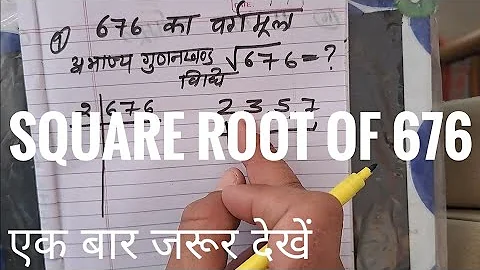 ① 676 का वर्गमूल
अभाज्य गुणनखण्ड √676=?
विधि
2 676 2 3 5 7
SQUARE ROOT OF 676
एक बार जरूर देखें